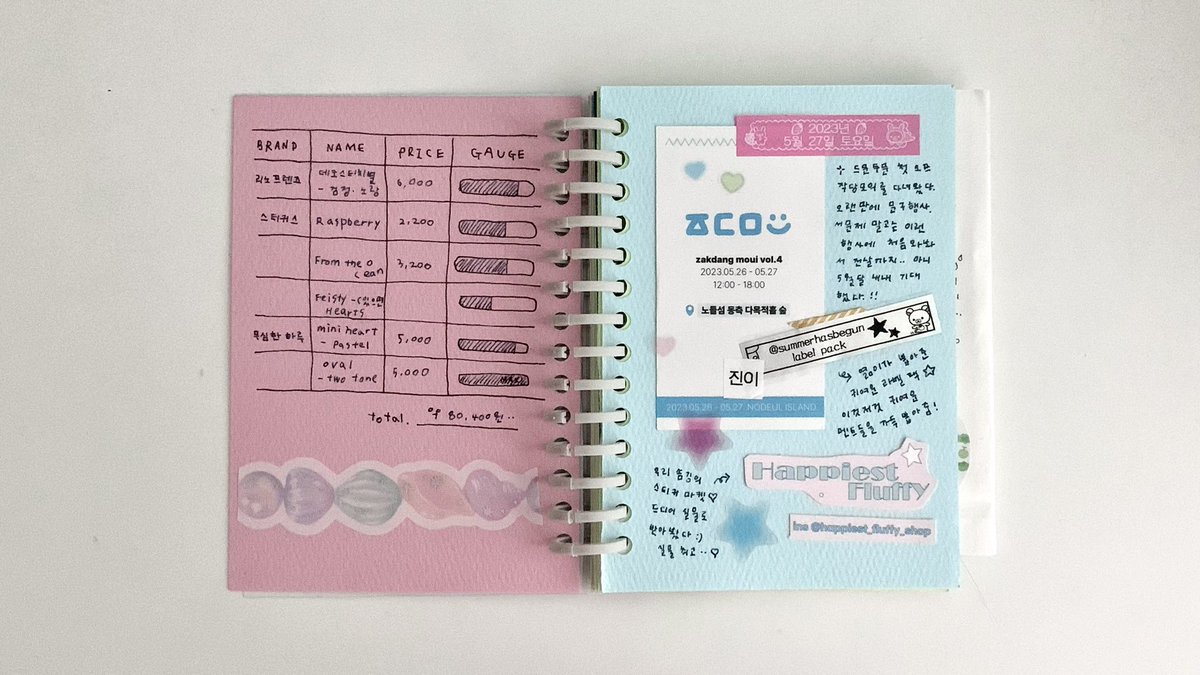 BRAND NAME PRICE GAUGE
리노프렌코 데코스티치별 6,000
- 검정·노랑
스티커스 Raspberry 2,200
From the Ocean 3,200
Feisty
Hearts
무심한 하루 mini heart 5,000
- pastel
oval 5,000
- two tone
total. 80,400원..
2023년
5월 27일 토요일
ㅈㄷㅁ
zakdang moui vol.4
2023.05.26 - 05.27
12:00 - 18:00
노들섬 동측 다목적홀 숲
진이
2023.05.26 - 05.27. NODEUL ISLAND.
드문두문 첫 오프
작당모의를 다녀왔다.
오랜만에 문구행사.
서문페 말고는 이런
행사에 처음 와봐
서 전날까지.. 아니
5월달 내내 기대
했다.!!
@summerhasbegun
label pack
열이가 뽑아준
귀여운 라벨 팩
이것저것 귀여운
멘트들을 가득 뽑아줌!
우리 솜깅의
스티커 마켓♡
드디어 실물로
받아봤다 :)
실물 최고..♡
Happiest
Fluffy
ins @happiest_fluffy_shop